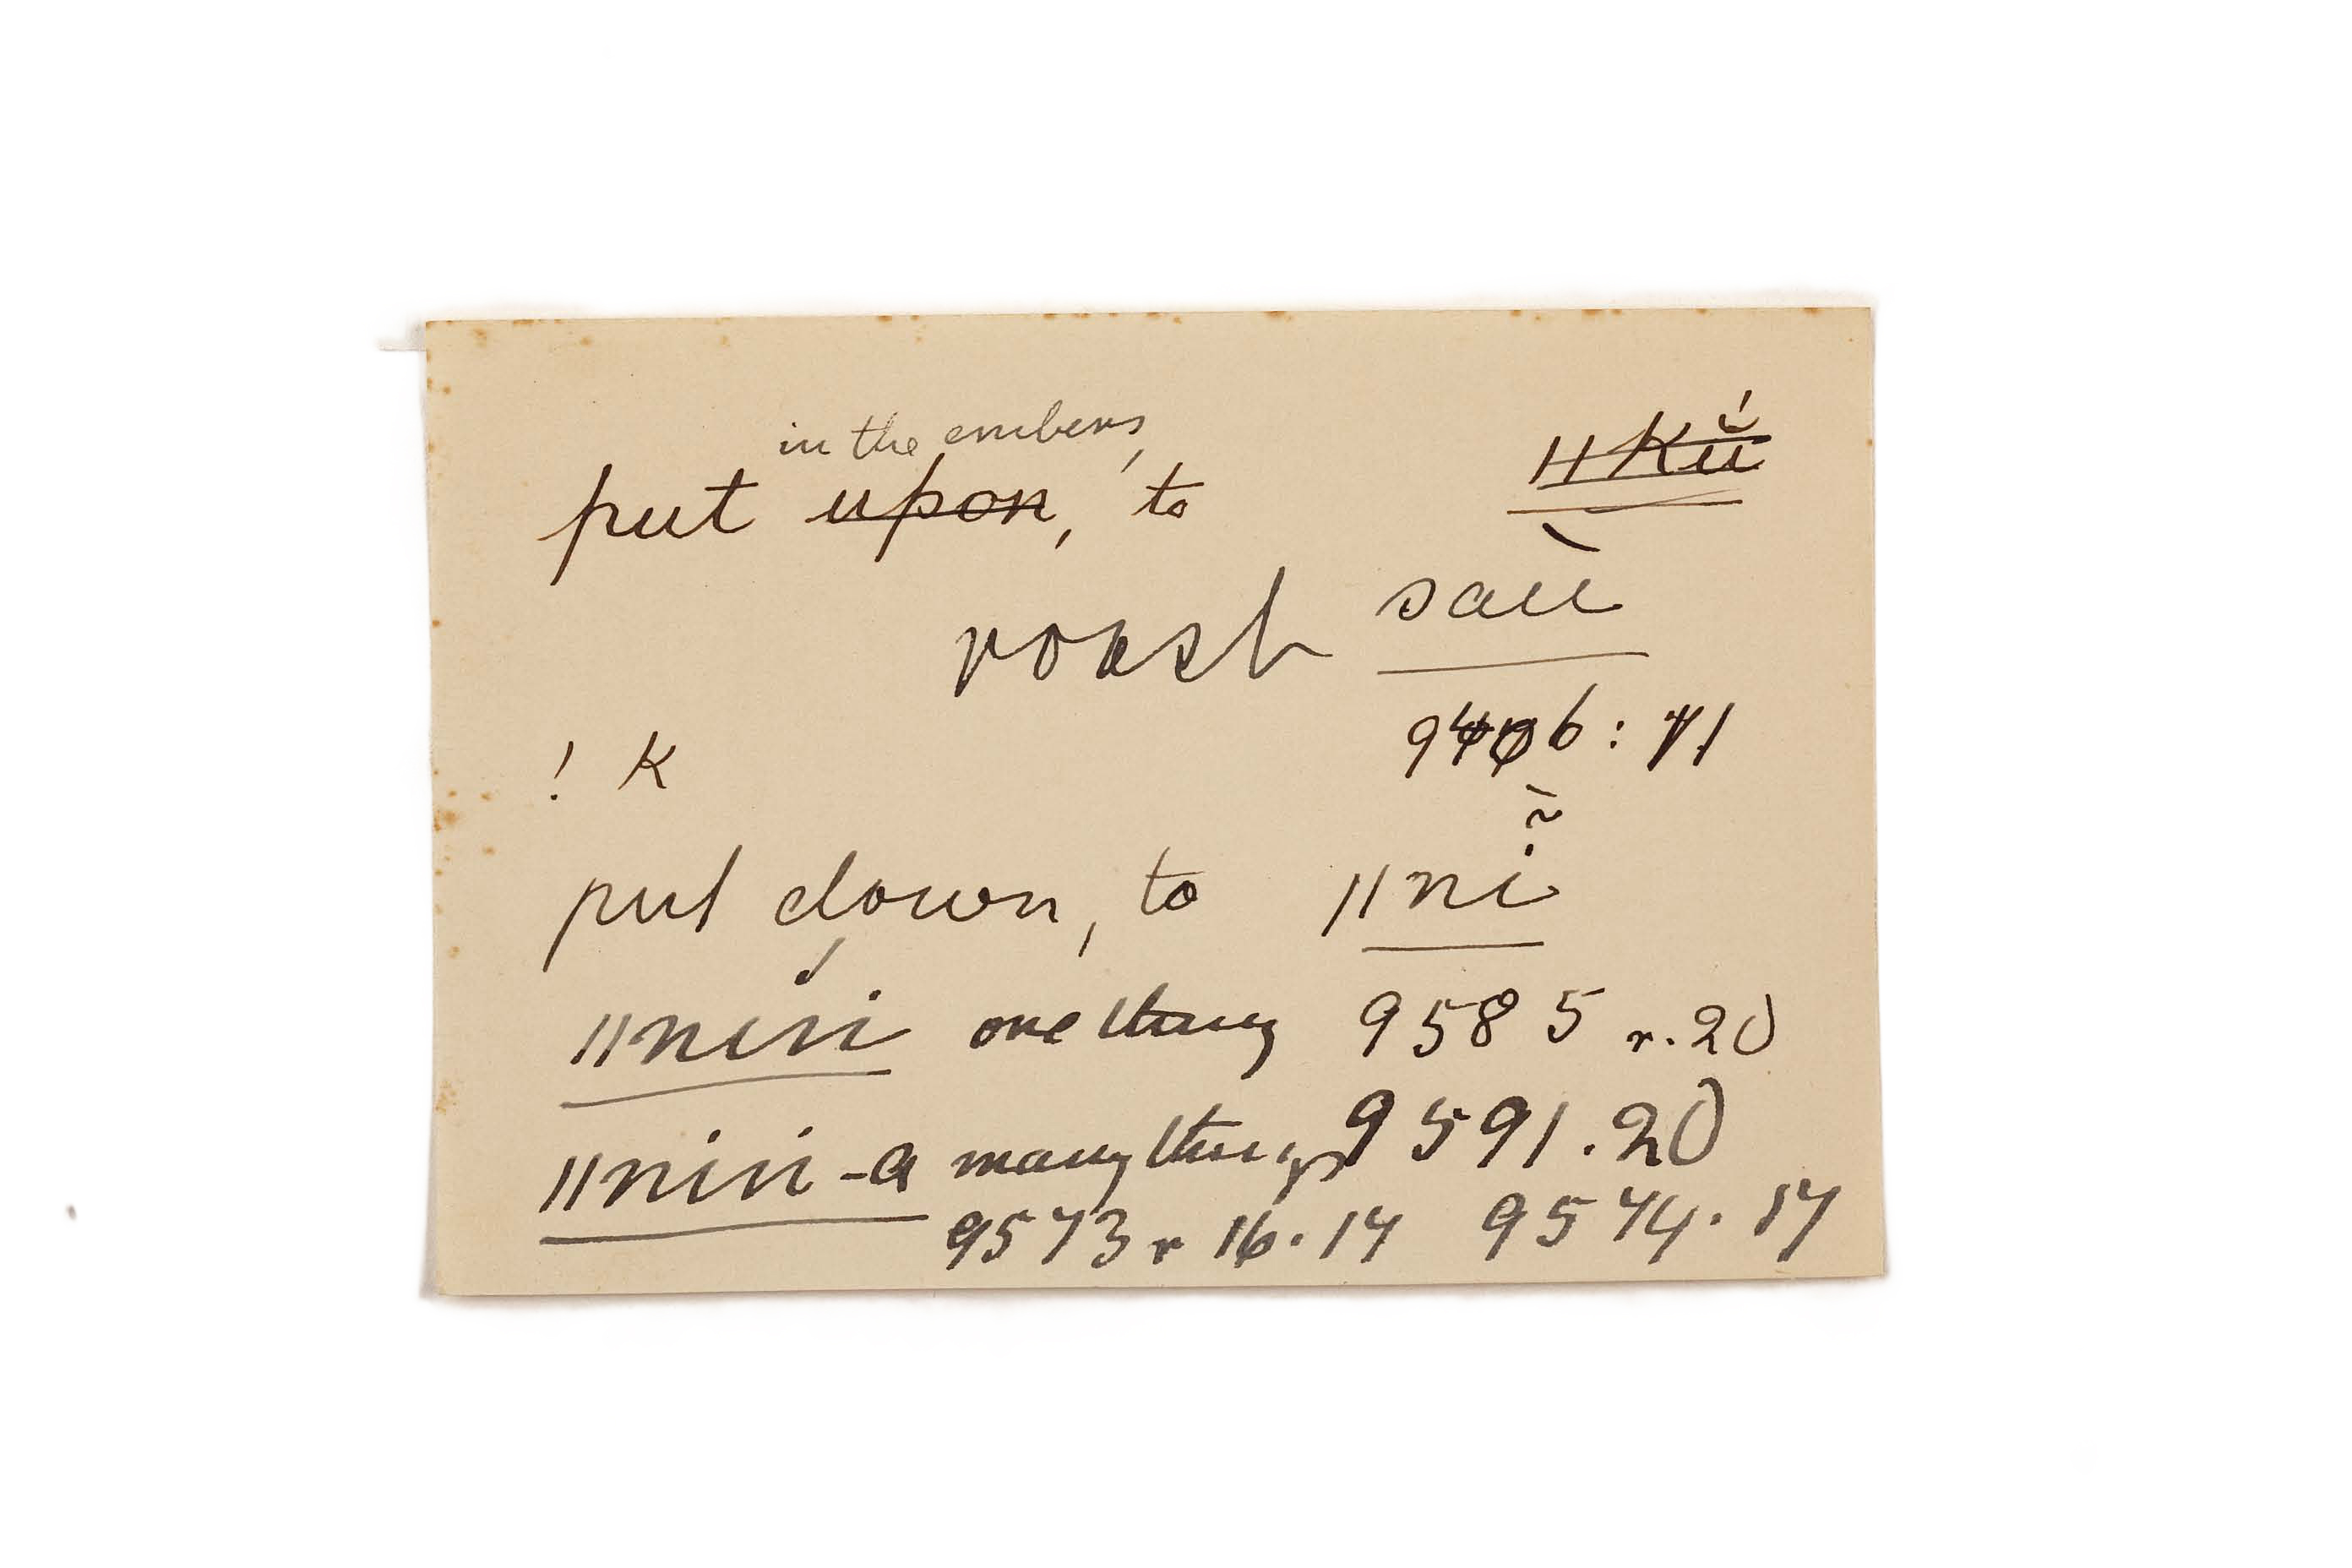 in the embers,
put upon, to ǁkŭ́
roast sau̔̀
9406 : 71
! K
put down, to ǁnĩ̀
ǁnı́ṅi one thing 9585 r. 20
ǁniṅi-a many things 9591. 20
9573 r 16. 17 9574. 17